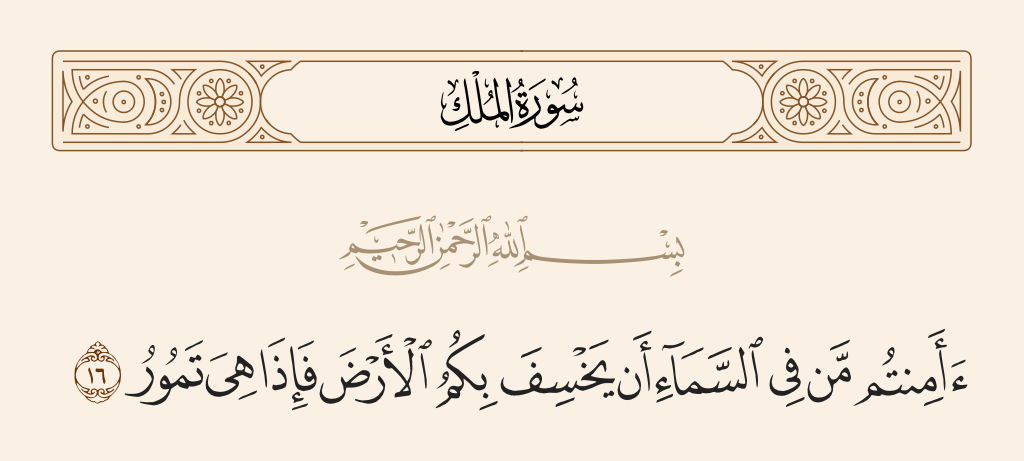 سُورَةُ المُلْكِ
بِسْمِ ٱللَّهِ ٱلرَّحْمَٰنِ ٱلرَّحِيمِ
ءَأَمِنتُم مَّن فِى ٱلسَّمَآءِ أَن يَخْسِفَ بِكُمُ ٱلْأَرْضَ فَإِذَا هِىَ تَمُورُ ١٦